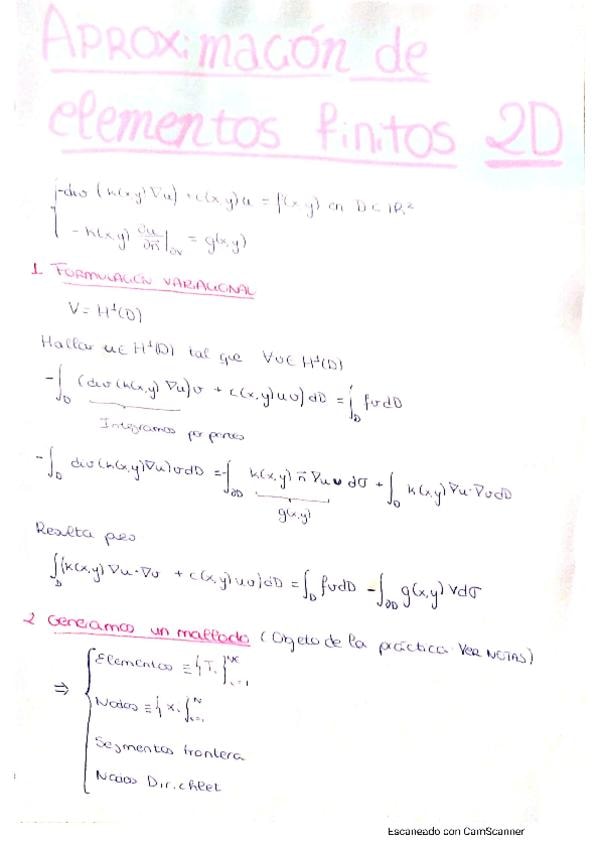 APROXiMACIÓN de
elementos finitos 2D
-div (k(x,y) ∇u) + c(x,y) u = f(x,y) en D ⊂ IR²
- k(x,y) ∂u/∂n⃗ |∂D = g(x,y)
1. FORMULACIÓN VARIACIONAL
V = H¹(D)
Hallar u ∈ H¹(D) tal que ∀v ∈ H¹(D)
-∫_D (div(k(x,y) ∇u)v + c(x,y) u v) dD = ∫_D f v dD
Integramos por partes
-∫_D div(k(x,y)∇u) v dD = -∫_∂D k(x,y) n⃗ ∇u v dσ + ∫_D k(x,y) ∇u·∇v dD
g(x,y)
Resulta pues
∫_D (k(x,y) ∇u·∇v + c(x,y) u v) dD = ∫_D f v dD - ∫_∂D g(x,y) v dσ
2 Generamos un mallado (Objeto de la práctica. VER NOTAS)
Elementos ≡ {T_i}
⇒ Nodos ≡ {x_i}^N_i=1
Segmentos frontera
Nodos Dirichlet
Escaneado con CamScanner